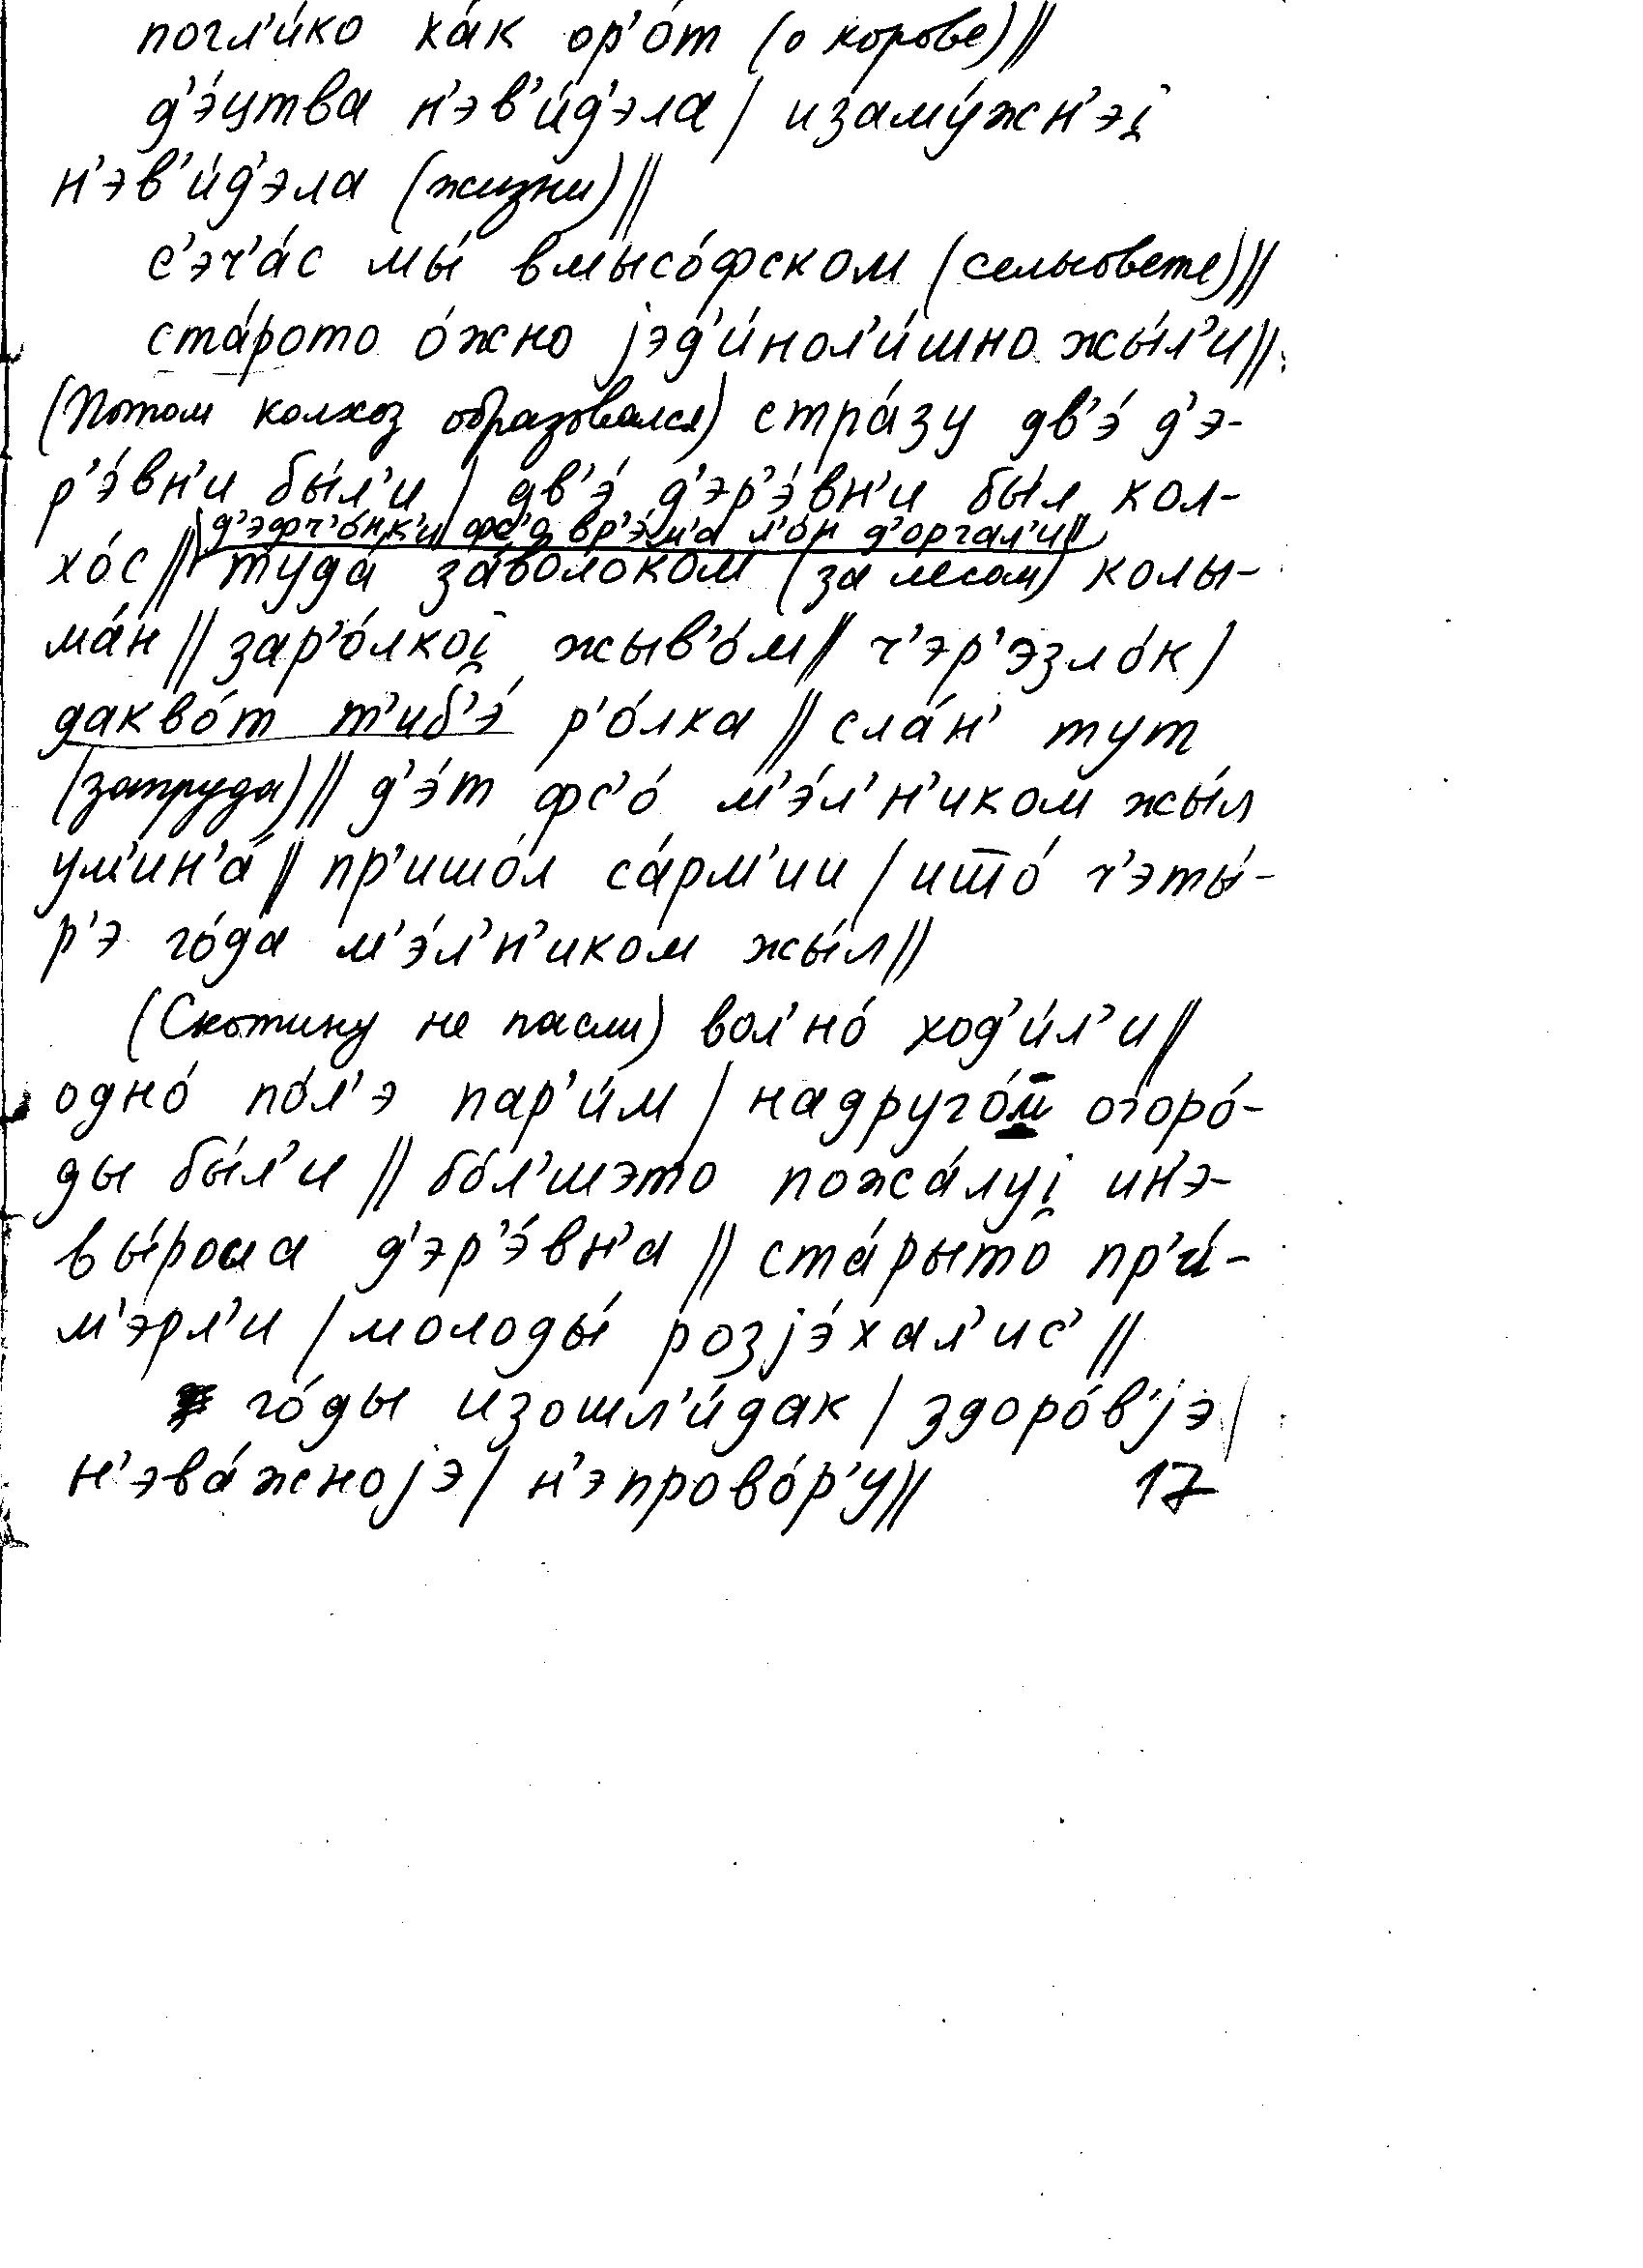 погл'и́ко ха́к ор'о́т (о корове)||
д'э́цтва н'эв'и́д'эла | изаму́жн'эį
н'эв'и́д'эла (жизни)||
с'эч'а́с мы́ вмысо́фском (сельсовете)||
ста́рото о́жно jэд'и́нол'и́шно жы́л'и||
(Потом колхоз образовался) стра́зу дв'э́ д'э-
р'э́вн'и бы́л'и | дв'э́ д'эр'э́вн'и был кол-
д'эфч'о́нк'и фс'о вр'э́м'а л'о́н д'оргал'и||
хо́с || туда́ за́волоком (за лесом) колы-
ма́н || зар'о́лкоį жыв'о́м || ч'эр'эзло́к |
дакво́т т'иб'э́ р'о́лка || сла́н' тут
(запруда)|| д'э́т фс'о́ м'э́л'н'иком жы́л
ум'ин'а́ || пр'ишо́л са́рм'ии | што́ ч'эты́-
р'э го́да м'э́л'н'иком жы́л||
(Скотину не пасли) вол'но́ ход'и́л'и||
одно́ по́л'э пар'и́м | надруго́м огоро́-
ды бы́л'и || бо́л'шэто пожа́луį ин'э-
вы́роша д'эр'э́вн'а || ста́рыто пр'и́-
м'эрл'и | молоды́ розjэ́хал'ис' ||
го́ды изошл'и́дак | здоро́в'jэ |
н'эва́жноjэ | н'эпрово́р'у||
17